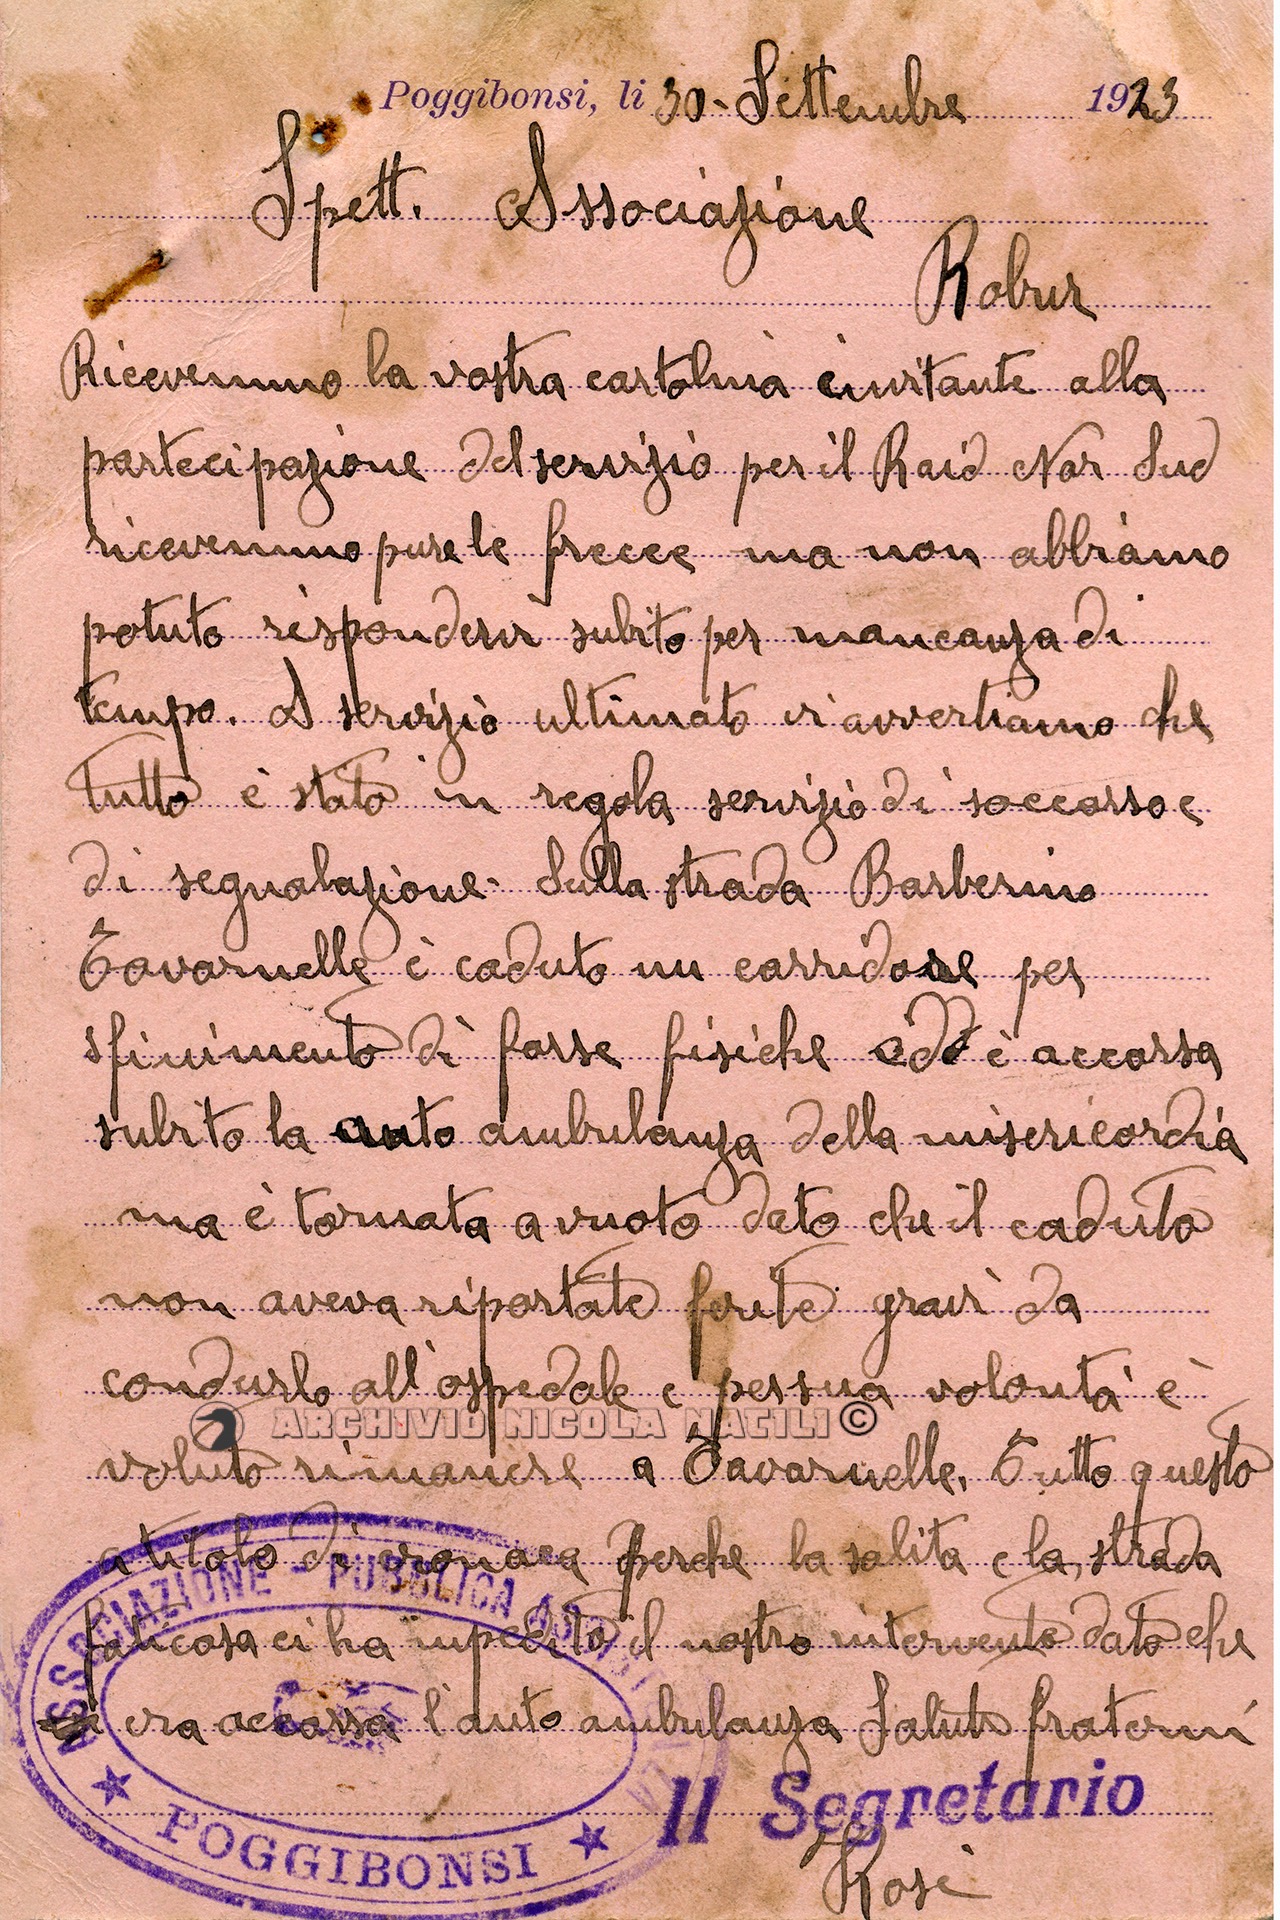 Poggibonsi, li 30 - Settembre 1923
Spett. Associazione
Robur
Ricevemmo la vostra cartolina invitante alla
partecipazione del servizio per il Raid Nor Sud
ricevemmo pure le frecce ma non abbiamo
potuto rispondervi subito per mancanza di
tempo. A servizio ultimato vi avvertiamo che
tutto è stato in regola servizio di soccorso e
di segnalazione. Sulla strada Barberino
Tavarnelle è caduto un corridore per
sfinimento di forse fisiche ed è accorsa
subito la auto ambulanza della misericordia
ma è tornata a vuoto dato che il caduto
non aveva riportate ferite gravi da
condurlo all'ospedale e per sua volontà è
ARCHIVIO NICOLA NATILI ©
voluto rimanere a Tavarnelle. Tutto questo
a titolo di cronaca perche la salita e la strada
faticosa ci ha impedito il nostro intervento dato che
era accorsa l'auto ambulanza Saluti fraterni
ASSOCIAZIONE - PUBBLICA ASSISTENZA
POGGIBONSI
Il Segretario
Rosi